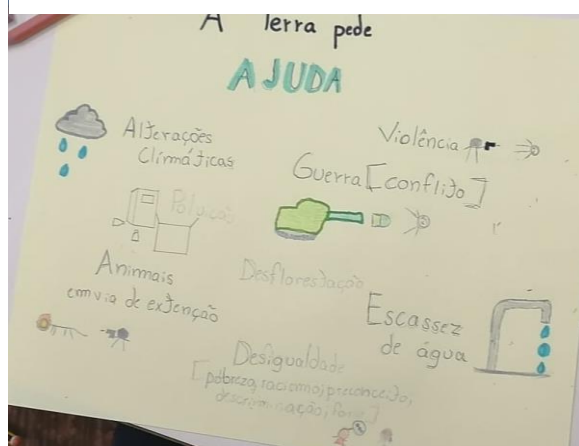 A Terra pede
AJUDA
Alterações
Climáticas
Violência
Guerra [conflito]
Poluição
Animais
em via de extenção
Desflorestação
Escassez
de água
Desigualdade
[pobreza, racismo, preconceito,
descriminação, fome]